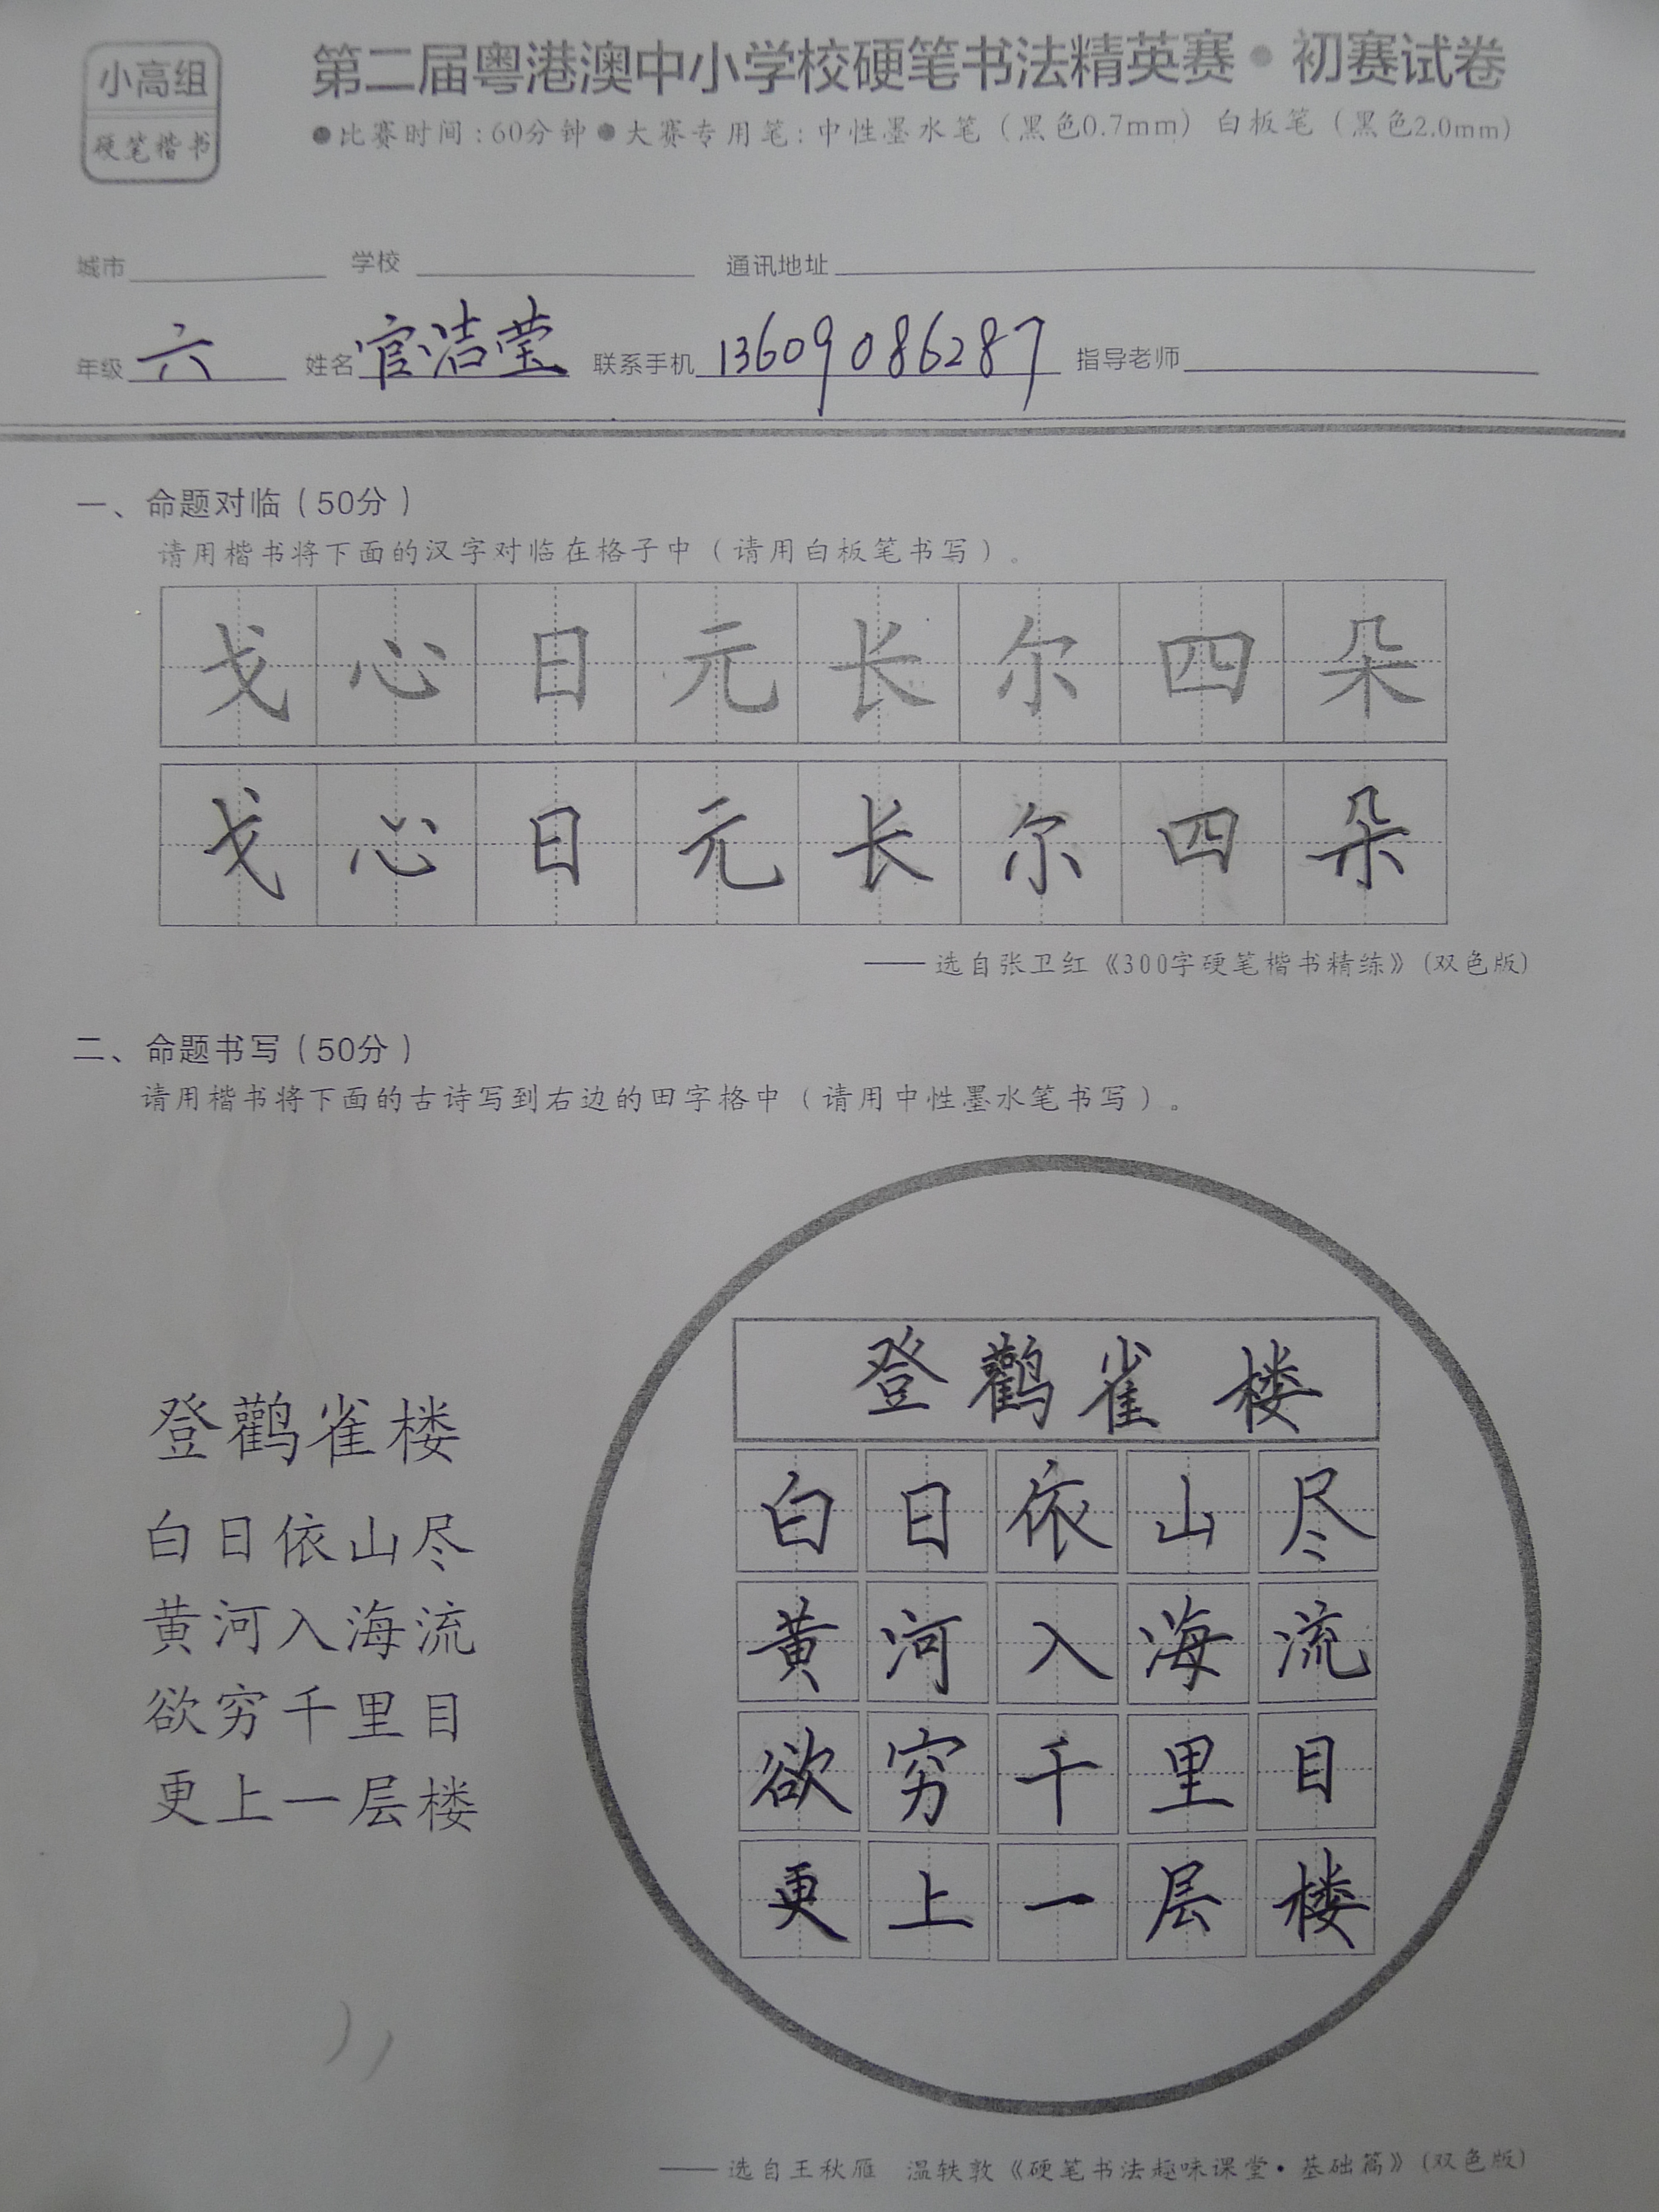 小高组
硬笔楷书
第二届粤港澳中小学校硬笔书法精英赛•初赛试卷
●比赛时间:60分钟●大赛专用笔:中性墨水笔（黑色0.7mm）白板笔（黑色2.0mm）
城市 学校 通讯地址
年级 六 姓名 官洁莹 联系手机 13609086287 指导老师
一、命题对临（50分）
请用楷书将下面的汉字对临在格子中（请用白板笔书写）。
戈心日元长尔四朵
戈心日元长尔四朵
——选自张卫红《300字硬笔楷书精练》(双色版)
二、命题书写（50分）
请用楷书将下面的古诗写到右边的田字格中（请用中性墨水笔书写）。
登鹳雀楼
白日依山尽
黄河入海流
欲穷千里目
更上一层楼
登鹳雀楼
白日依山尽
黄河入海流
欲穷千里目
更上一层楼
——选自王秋雁 温轶敦《硬笔书法趣味课堂•基础篇》(双色版)